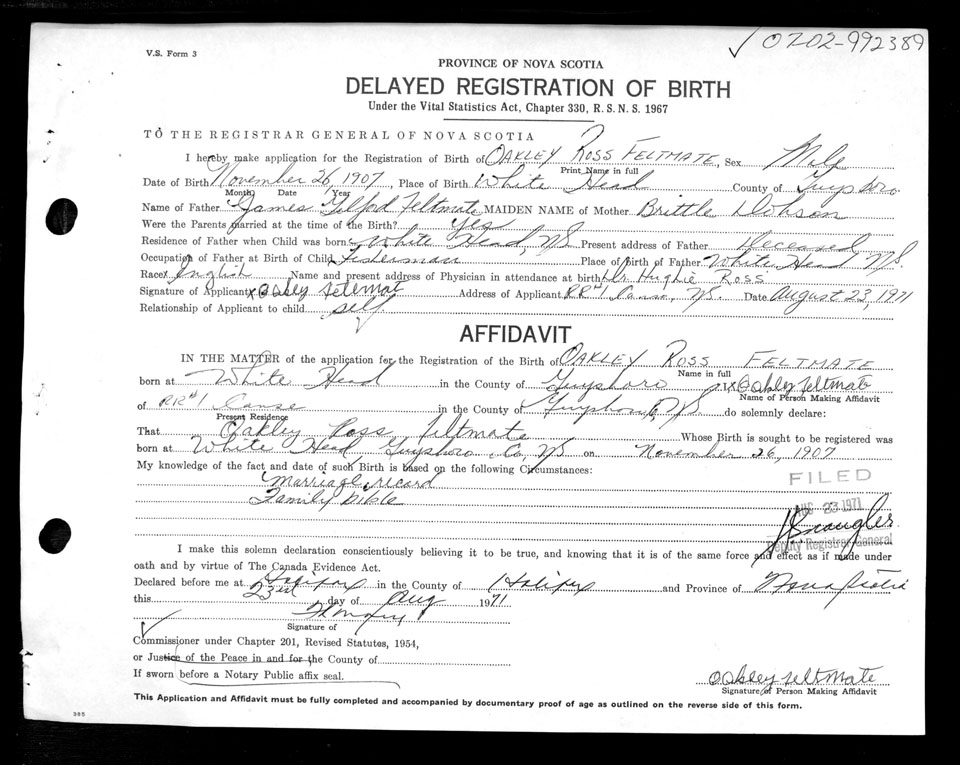 ✓ 0702-992389
V.S. Form 3
PROVINCE OF NOVA SCOTIA
DELAYED REGISTRATION OF BIRTH
Under the Vital Statistics Act, Chapter 330, R.S.N.S. 1967
TO THE REGISTRAR GENERAL OF NOVA SCOTIA
I hereby make application for the Registration of Birth of OAKLEY ROSS FELTMATE, Sex Male
Print Name in full
Date of Birth November 26 1907, Place of Birth White Head County of Guysboro
Month Date Year
Name of Father James Telford Feltmate MAIDEN NAME of Mother Brittle Dohson
Were the Parents married at the time of the Birth? Yes
Residence of Father when Child was born White Head, NS Present address of Father Deceased
Occupation of Father at Birth of Child Fisherman Place of Birth of Father White Head NS.
Race x English Name and present address of Physician in attendance at birth Dr. Hughie Ross
Signature of Applicant x Oakley feltmat Address of Applicant RR#1 Canso, NS. Date August 23, 1971
Relationship of Applicant to child self
AFFIDAVIT
IN THE MATTER of the application for the Registration of the Birth of OAKLEY ROSS FELTMATE
Name in full
born at White Head in the County of Guysboro x Oakley feltmate
Name of Person Making Affidavit
of RR#1 Canso in the County of Guysboro, NS do solemnly declare:
Present Residence
That Oakley Ross Feltmate Whose Birth is sought to be registered was
born at White Head Guysboro Co, NS on November 26, 1907
My knowledge of the fact and date of such Birth is based on the following Circumstances:
Marriage record
Family Bible
FILED
AUG 23 1971
Deputy Registrar General
I make this solemn declaration conscientiously believing it to be true, and knowing that it is of the same force and effect as if made under
oath and by virtue of The Canada Evidence Act.
Declared before me at Halifax in the County of Halifax and Province of Nova Scotia
this 23rd day of Aug 1971
Signature of
Commissioner under Chapter 201, Revised Statutes, 1954,
or Justice of the Peace in and for the County of
If sworn before a Notary Public affix seal.
Oakley feltmate
Signature of Person Making Affidavit
This Application and Affidavit must be fully completed and accompanied by documentary proof of age as outlined on the reverse side of this form.
385